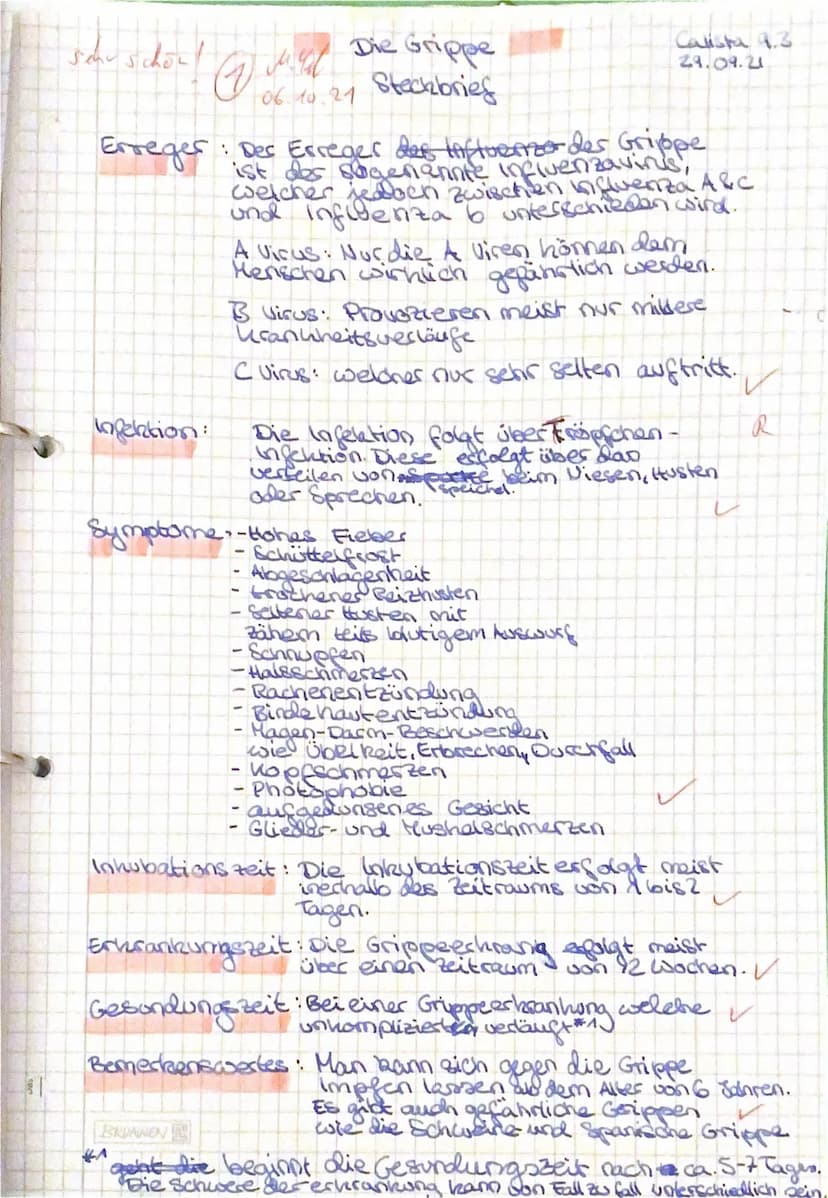 sehr schön!
1
06.10.21
Die Grippe
Steckbrief
Calista 9.3
29.09.21
Erreger : Der Erreger der Influenza der Grippe
ist der sogenannte Influenzavirus,
welcher jedoch zwischen Influenza A&C
und Influenza b unterschieden wird.
A Virus: Nur die A Viren können dem
Menschen wirklich gefährlich werden.
B Virus: Provozieren meist nur mildere
Krankheitsverläufe
C Virus: welcher nur sehr selten auftritt.
Infektion: Die Infektion folgt über Tröpfchen-
R
Infektion. Diese erfolgt über das
verteilen von Speichel beim Niesen, Husten
oder Sprechen.
Symptome: - Hohes Fieber
- Schüttelfrost
- Abgeschlagenheit
- trockener Reizhusten
- seltener Husten mit
zähem teils blutigem Auswurf
- Schnupfen
- Halsschmerzen
- Rachenentzündung
- Bindehautentzündung
- Magen-Darm-Beschwerden
wie Übelkeit, Erbrechen, Durchfall
- Kopfschmerzen
- Photophobie
- aufgedunsenes Gesicht
- Glieder- und Muskelschmerzen
Inkubationszeit: Die Inkubationszeit erfolgt meist
inerhalb des Zeitraums von 1 bis 2
Tagen.
Erkrankungszeit: Die Grippeerkrang erfolgt meist
über einen Zeitraum von 12 Wochen.
Gesundungszeit: Bei einer Grippeerkrankung welche
unkompliziert verläuft *1
Bemerkenswertes: Man kann sich gegen die Grippe
Impfen lassen ab dem Alter von 6 Jahren.
Es gibt auch gefährliche Grippen
wie die Schweine und Spanische Grippe
BRUNNEN
*1 geht die beginnt die Gesundungszeit nach ca. 5-7 Tagen.
Die Schwere der erkrankung kann von Fall zu Fall unterschiedlich sein